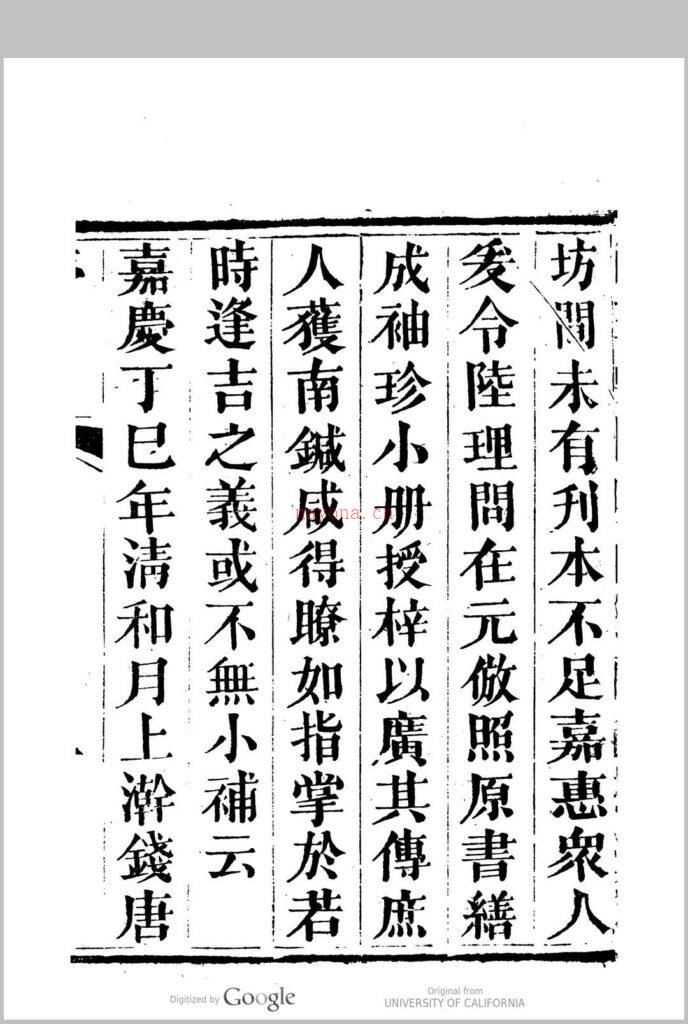 坊間未有刊本不足嘉惠衆人
爰令陸理問在元倣照原書繕
成袖珍小册授梓以廣其傳庶
人獲南鍼咸得瞭如指掌於若
時逢吉之義或不無小補云
嘉慶丁巳年淸和月上澣錢唐
nayona.cn
Digitized by Google
Original from
UNIVERSITY OF CALIFORNIA